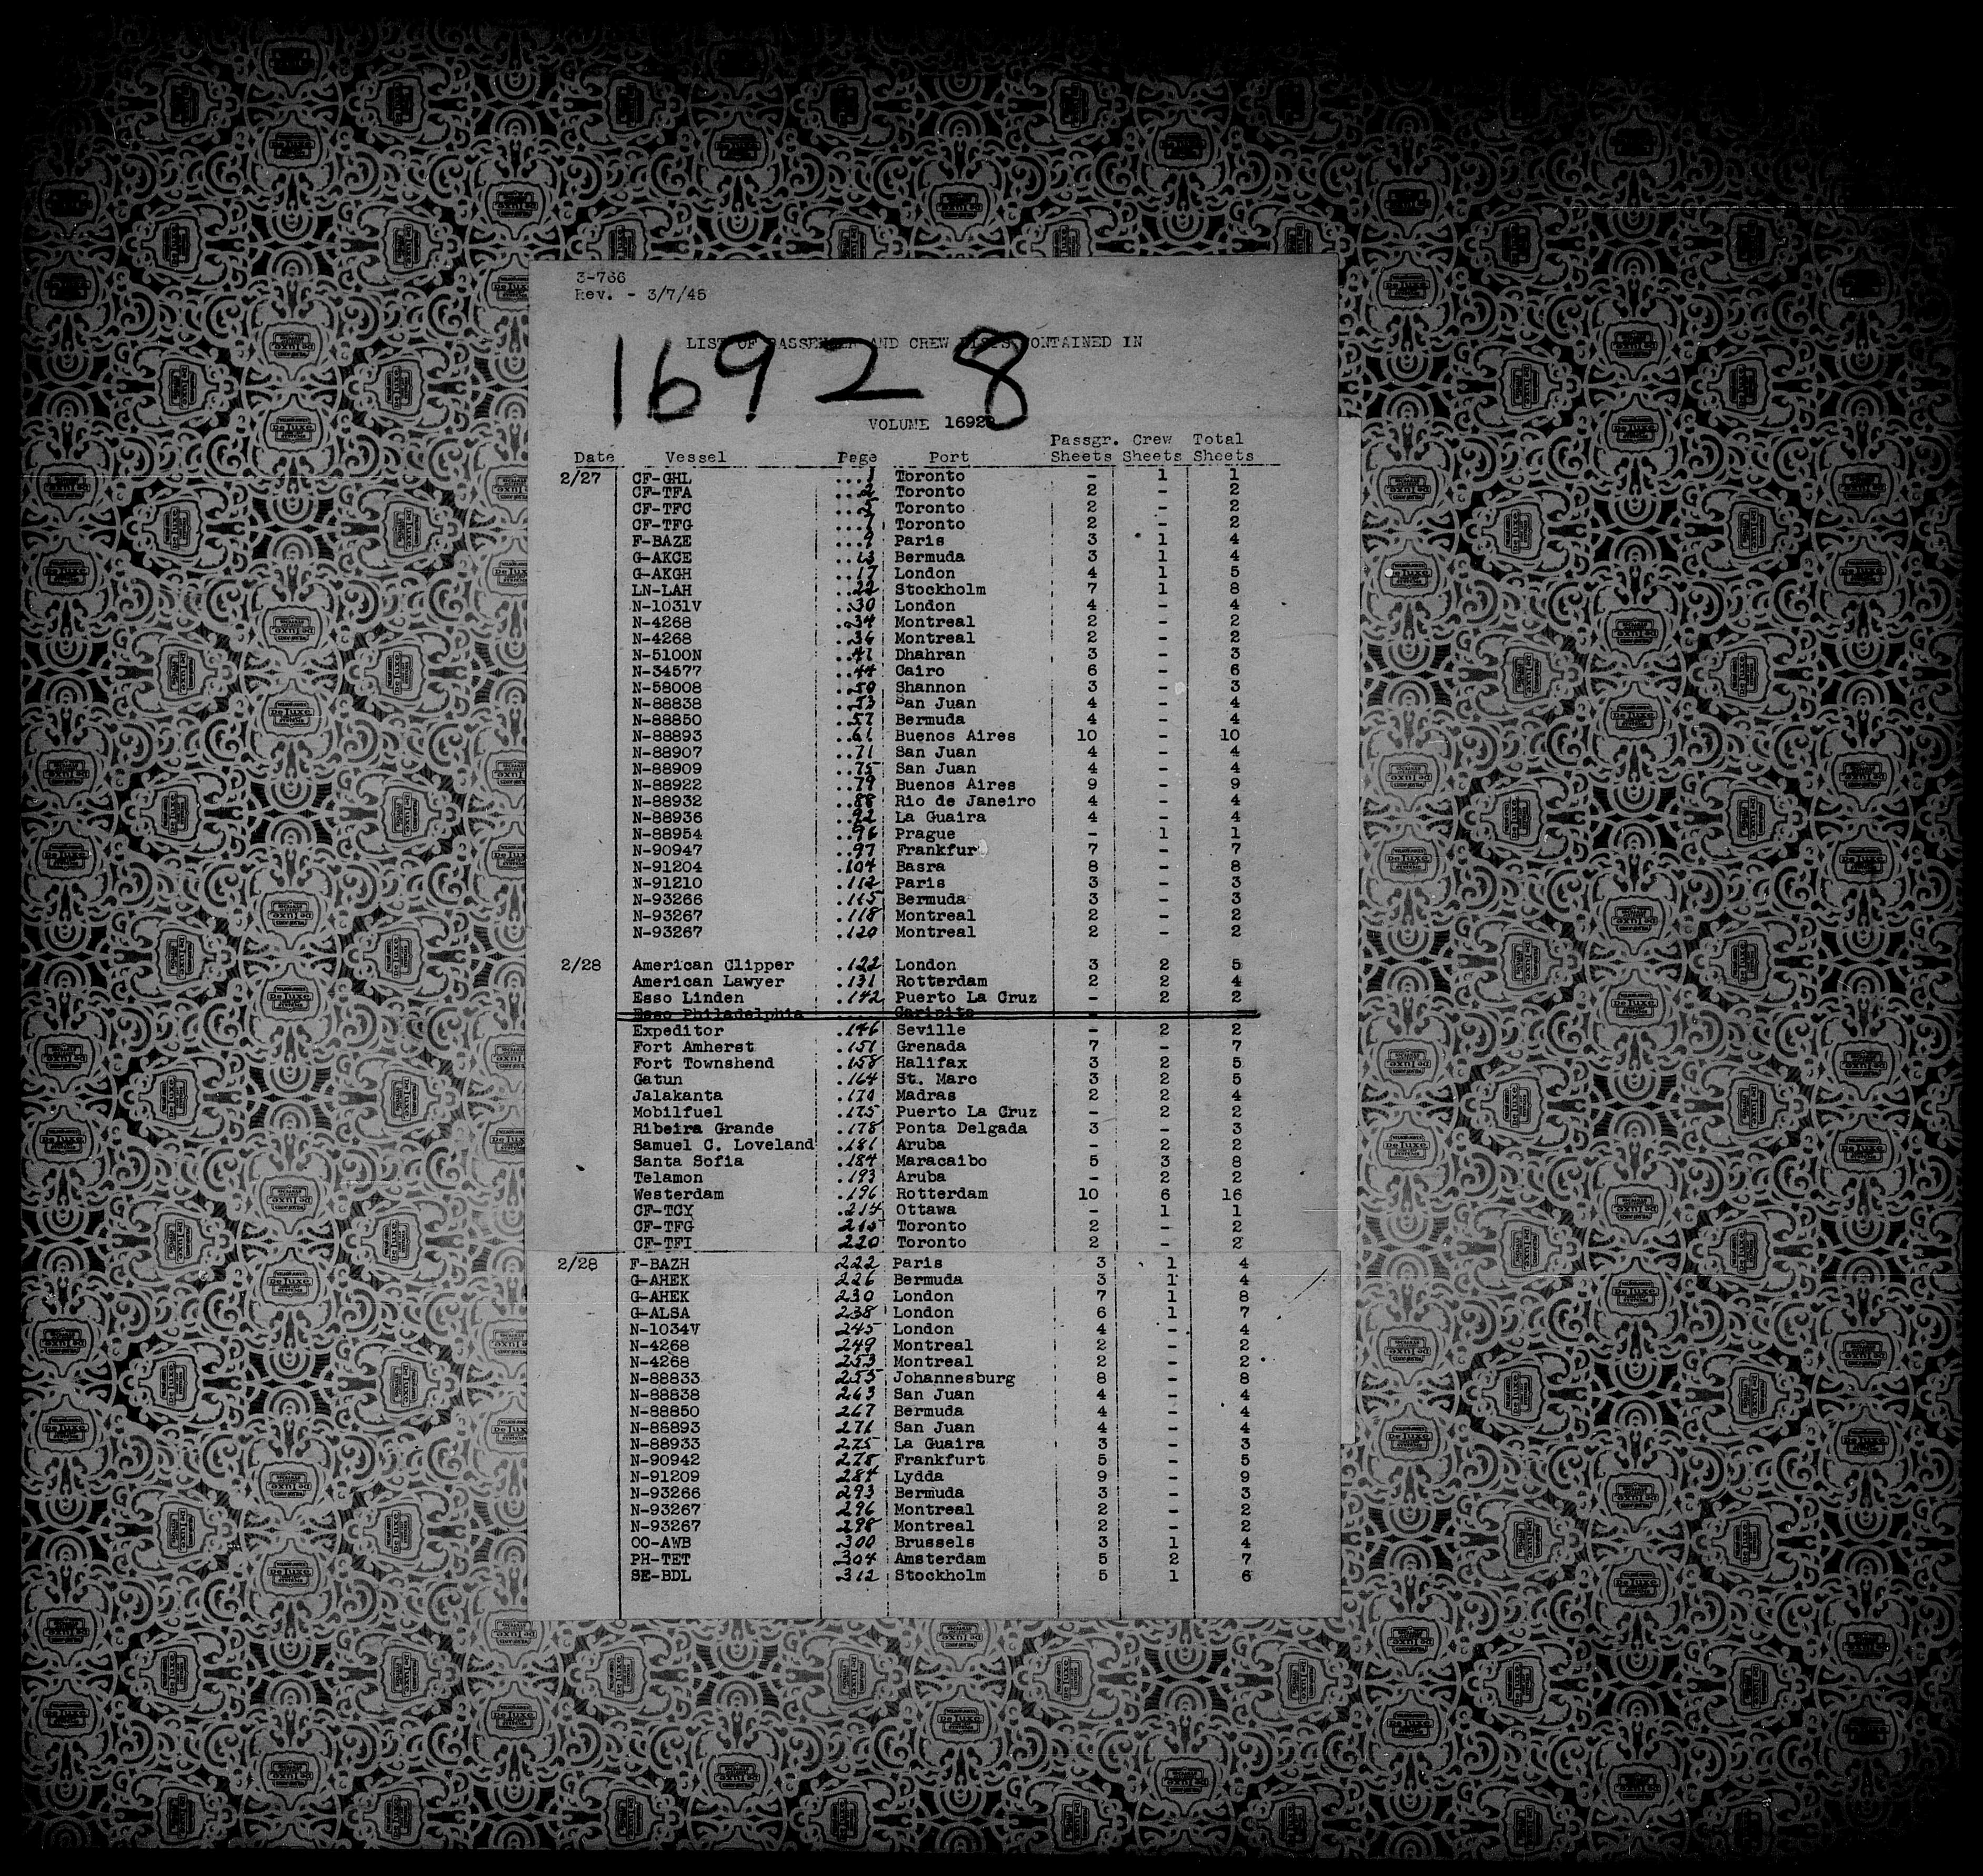 3-766
Rev. - 3/7/45
LIST OF PASSENGER AND CREW LISTS CONTAINED IN
16928
VOLUME 16928
Passgr. Crew Total
Date Vessel Page Port Sheets Sheets Sheets
2/27 CF-GHL ...1 Toronto - 1 1
CF-TFA ...2 Toronto 2 - 2
CF-TFC ...5 Toronto 2 - 2
CF-TFG ... Toronto 2 - 2
F-BAZE ...9 Paris 3 1 4
G-AKCE ..13 Bermuda 3 1 4
G-AKGH ..17 London 4 1 5
LN-LAH ..22 Stockholm 7 1 8
N-1031V ..30 London 4 - 4
N-4268 ..34 Montreal 2 - 2
N-4268 ..36 Montreal 2 - 2
N-5100N ..41 Dhahran 3 - 3
N-34577 ..44 Cairo 6 - 6
N-58008 ..50 Shannon 3 - 3
N-88838 ..53 San Juan 4 - 4
N-88850 ..57 Bermuda 4 - 4
N-88893 ..61 Buenos Aires 10 - 10
N-88907 ..71 San Juan 4 - 4
N-88909 ..75 San Juan 4 - 4
N-88922 ..79 Buenos Aires 9 - 9
N-88932 ..88 Rio de Janeiro 4 - 4
N-88936 ..92 La Guaira 4 - 4
N-88954 ..96 Prague - 1 1
N-90947 ..97 Frankfur 7 - 7
N-91204 .104 Basra 8 - 8
N-91210 .112 Paris 3 - 3
N-93266 .115 Bermuda 3 - 3
N-93267 .118 Montreal 2 - 2
N-93267 .120 Montreal 2 - 2
2/28 American Clipper .122 London 3 2 5
American Lawyer .131 Rotterdam 2 2 4
Esso Linden .142 Puerto La Cruz - 2 2
Esso Philadelphia .... Caripito - - -
Expeditor .146 Seville - 2 2
Fort Amherst .151 Grenada 7 - 7
Fort Townshend .158 Halifax 3 2 5
Gatun .164 St. Marc 3 2 5
Jalakanta .170 Madras 2 2 4
Mobilfuel .175 Puerto La Cruz - 2 2
Ribeira Grande .178 Ponta Delgada 3 - 3
Samuel C. Loveland .181 Aruba - 2 2
Santa Sofia .184 Maracaibo 5 3 8
Telamon .193 Aruba - 2 2
Westerdam .196 Rotterdam 10 6 16
CF-TCY .214 Ottawa - 1 1
CF-TFG 215 Toronto 2 - 2
CF-TFI 220 Toronto 2 - 2
2/28 F-BAZH 222 Paris 3 1 4
G-AHEK 226 Bermuda 3 1 4
G-AHEK 230 London 7 1 8
G-ALSA 238 London 6 1 7
N-1034V 245 London 4 - 4
N-4268 249 Montreal 2 - 2
N-4268 253 Montreal 2 - 2
N-88833 255 Johannesburg 8 - 8
N-88838 263 San Juan 4 - 4
N-88850 267 Bermuda 4 - 4
N-88893 271 San Juan 4 - 4
N-88933 275 La Guaira 3 - 3
N-90942 278 Frankfurt 5 - 5
N-91209 284 Lydda 9 - 9
N-93266 293 Bermuda 3 - 3
N-93267 296 Montreal 2 - 2
N-93267 298 Montreal 2 - 2
OO-AWB 300 Brussels 3 1 4
PH-TET 304 Amsterdam 5 2 7
SE-BDL 312 Stockholm 5 1 6